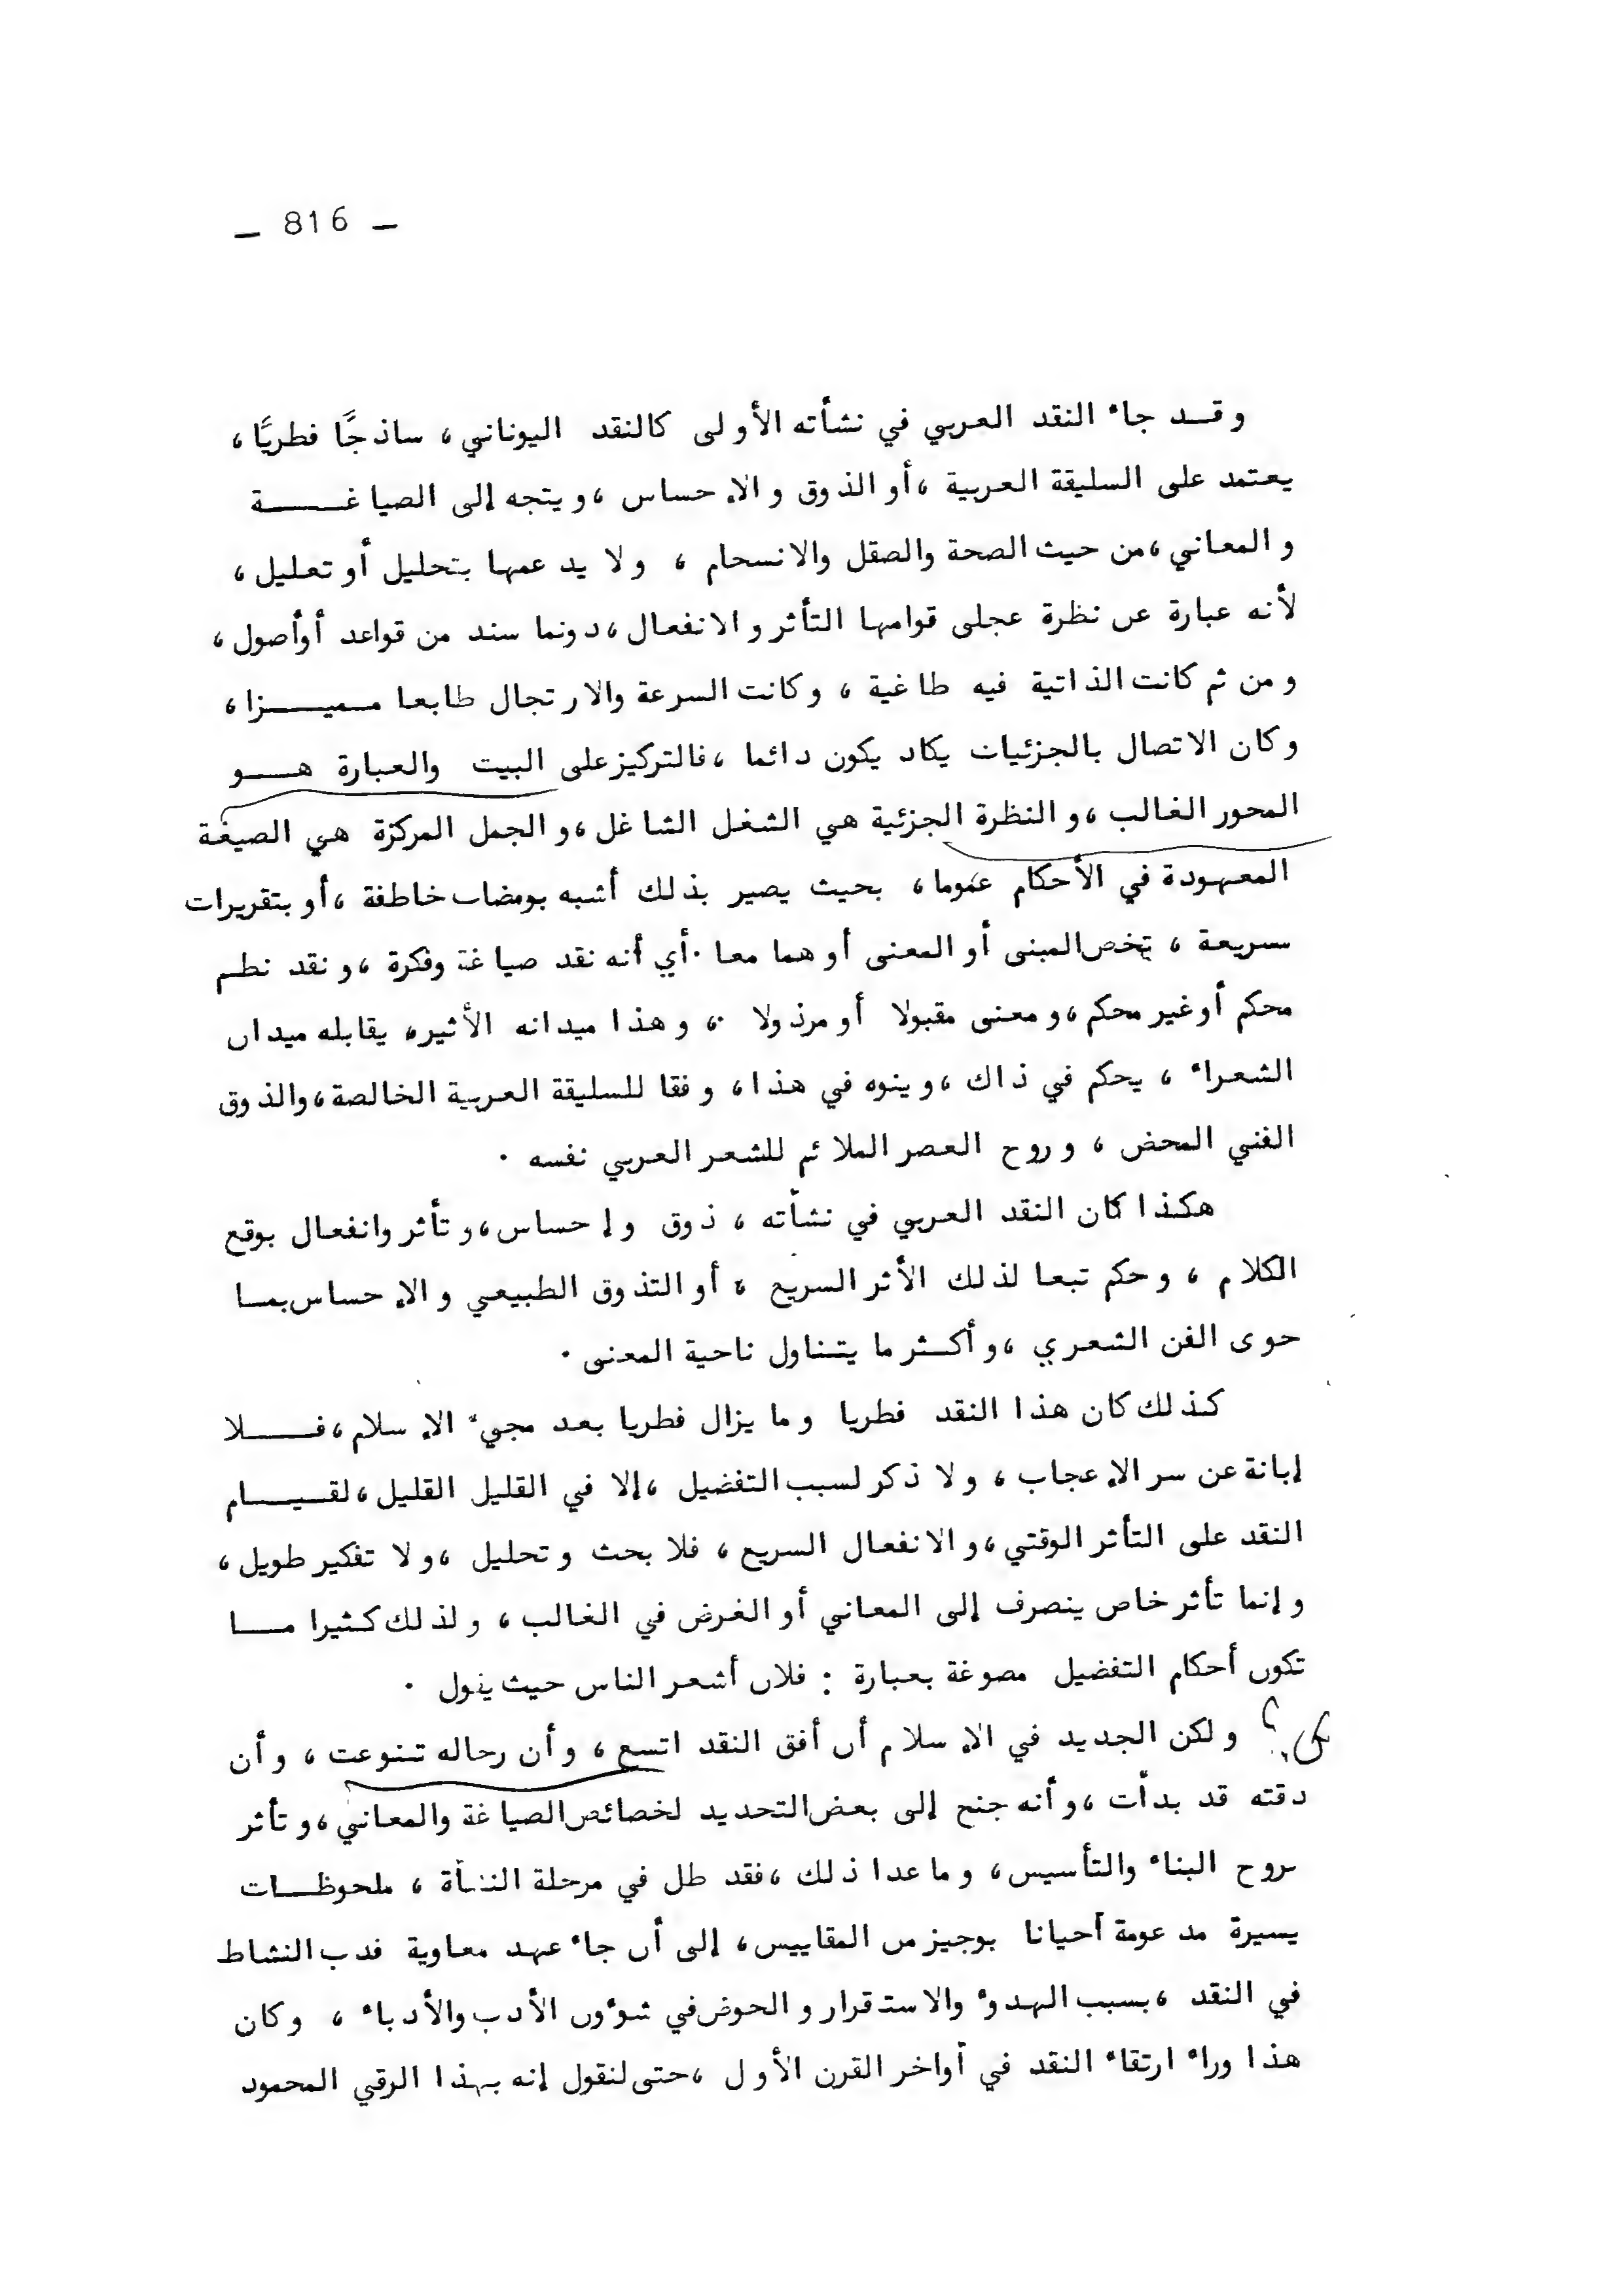 _ 816 _
وقد جاء النقد العربي في نشأته الأولى كالنقد اليوناني، ساذجًا فطريًا،
يعتمد على السليقة العربية، أو الذوق والإحساس، ويتجه إلى الصياغة
والمعاني، من حيث الصحة والصقل والانسجام، ولا يدعمها بتحليل أو تعليل،
لأنه عبارة عن نظرة عجلى قوامها التأثر والانفعال، دونما سند من قواعد أو أصول،
ومن ثم كانت الذاتية فيه طاغية، وكانت السرعة والارتجال طابعا مميزا،
وكان الاتصال بالجزئيات يكاد يكون دائما، فالتركيز على البيت والعبارة هو
المحور الغالب، والنظرة الجزئية هي الشغل الشاغل، والجمل المركزة هي الصيغة
المعهودة في الأحكام عموما، بحيث يصير بذلك أشبه بومضات خاطفة، أو بتقريرات
سريعة، تخص المبنى أو المعنى أو هما معا. أي أنه نقد صياغة وفكرة، ونقد نظم
محكم أو غير محكم، ومعنى مقبولا أو مرذولا .، وهذا ميدانه الأثير، يقابله ميدان
الشعراء، يحكم في ذاك، وينوه في هذا، وفقا للسليقة العربية الخالصة، والذوق
الفني المحض، وروح العصر الملائم للشعر العربي نفسه.
هكذا كان النقد العربي في نشأته، ذوق وإحساس، وتأثر وانفعال بوقع
الكلام، وحكم تبعا لذلك الأثر السريع، أو التذوق الطبيعي والإحساس بما
حوى الفن الشعري، وأكثر ما يتناول ناحية المعنى.
كذلك كان هذا النقد فطريا وما يزال فطريا بعد مجيء الإسلام، فلا
إبانة عن سر الإعجاب، ولا ذكر لسبب التفضيل، إلا في القليل القليل، لقيام
النقد على التأثر الوقتي، والانفعال السريع، فلا بحث وتحليل، ولا تفكير طويل،
وإنما تأثر خاص ينصرف إلى المعاني أو الغرض في الغالب، ولذلك كثيرا ما
تكون أحكام التفضيل مصوغة بعبارة : فلان أشعر الناس حيث يقول.
ولكن الجديد في الإسلام أن أفق النقد اتسع، وأن رجاله تنوعت، وأن
دقته قد بدأت، وأنه جنح إلى بعض التحديد لخصائص الصياغة والمعاني، وتأثر
بروح البناء والتأسيس، وما عدا ذلك، فقد ظل في مرحلة النشأة، ملحوظات
يسيرة مدعومة أحيانا بوجيز من المقاييس، إلى أن جاء عهد معاوية فدب النشاط
في النقد، بسبب الهدوء والاستقرار والخوض في شؤون الأدب والأدباء، وكان
هذا وراء ارتقاء النقد في أواخر القرن الأول، حتى لنقول إنه بهذا الرقي المحمود